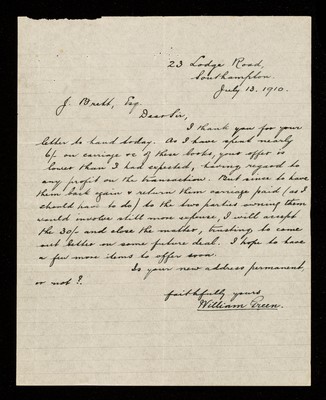 23 Lodge Road,
Southampton.
July 13. 1910.
J. Brett, Esq.
Dear Sir,
I thank you for your
letter to hand today. As I have spent nearly
6/- on carriage &c of these books, your offer is
lower than I had expected, having regard to
any profit on the transaction. But since to have
them back again & return them carriage paid (as I
should have to do) to the two parties owning them
would involve still more expense, I will accept
the 30/- and close the matter, trusting to come
out better on some future deal. I hope to have
a few more items to offer soon.
Is your new address permanent,
or not?.
faithfully yours
William Green.